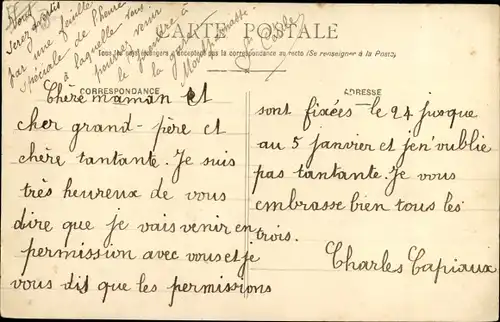 CARTE POSTALE
Tous les pays étrangers n'acceptent pas la correspondance au recto (Se renseigner à la Poste)
Vous
serez avertis
par une feuille
spéciale de l'heure
à laquelle vous
pourrez venir
le prendre à
la gare
CORRESPONDANCE
Chère maman et
cher grand-père et
chère tantante. Je suis
très heureux de vous
dire que je vais venir en
permission avec vous et je
vous dit que les permissions
ADRESSE
sont fixées le 24 jusque
au 5 janvier et je n'oublie
pas tantante. Je vous
embrasse bien tous les
trois.
Charles Capiaux